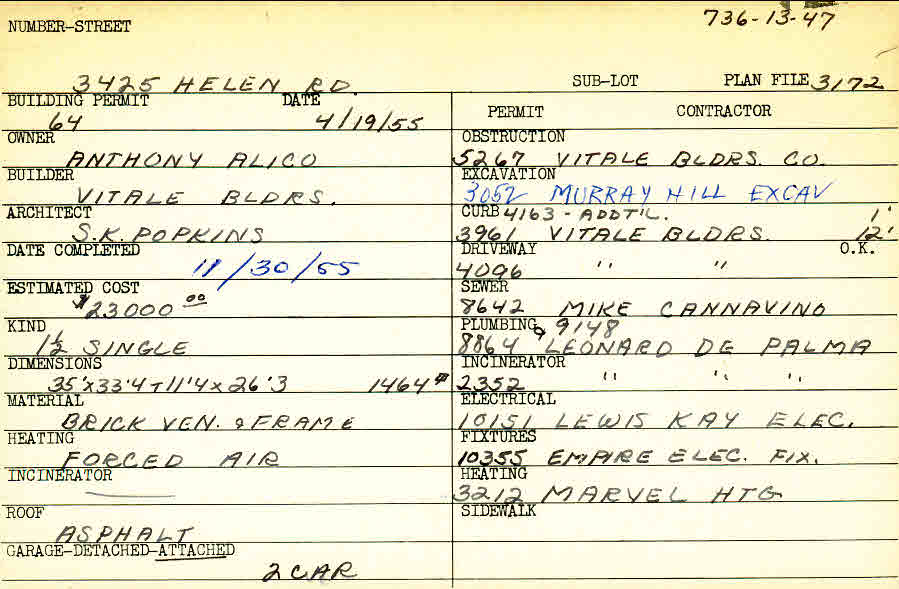 736-13-47
NUMBER-STREET
3425 HELEN RD.
SUB-LOT PLAN FILE 3172
BUILDING PERMIT DATE
64 4/19/55
OWNER
ANTHONY ALICO
BUILDER
VITALE BLDRS.
ARCHITECT
S.K. POPKINS
DATE COMPLETED
11/30/55
ESTIMATED COST
$23000 00
KIND
1½ SINGLE
DIMENSIONS
35'x33'4+11'4x26'3 1464#
MATERIAL
BRICK VEN. & FRAME
HEATING
FORCED AIR
INCINERATOR
ROOF
ASPHALT
GARAGE-DETACHED-ATTACHED
2 CAR
PERMIT CONTRACTOR
OBSTRUCTION
5267 VITALE BLDRS. CO.
EXCAVATION
3052 MURRAY HILL EXCAV
CURB 4163 - ADDT'L. 1'
3961 VITALE BLDRS. 12'
DRIVEWAY O.K.
4096 " "
SEWER
8642 MIKE CANNAVINO
PLUMBING & 9148
8864 LEONARD DE PALMA
INCINERATOR
2352 " " "
ELECTRICAL
10151 LEWIS KAY ELEC.
FIXTURES
10355 EMPIRE ELEC. FIX.
HEATING
3212 MARVEL HTG
SIDEWALK